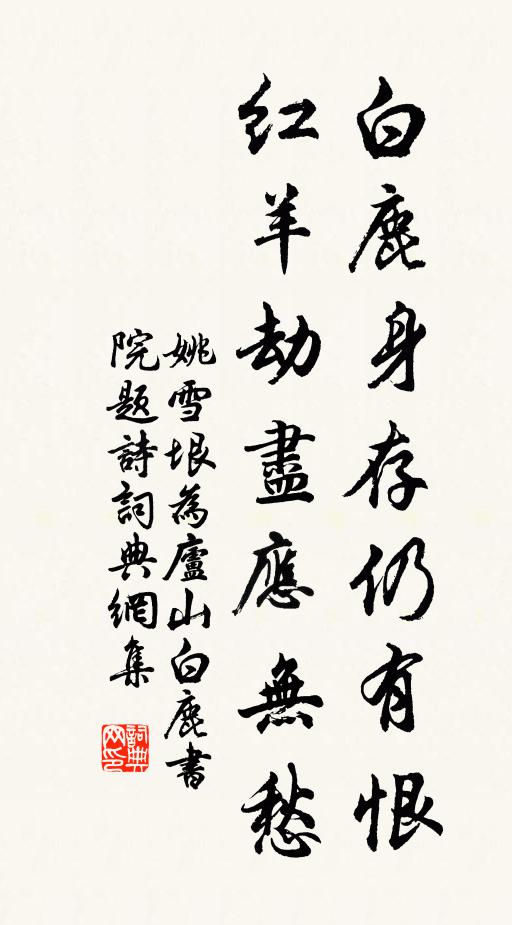 白鹿身存仍有恨
紅羊劫盡應無愁
姚雪垠為廬山白鹿書
院题詩詞典網集
詞典
网印